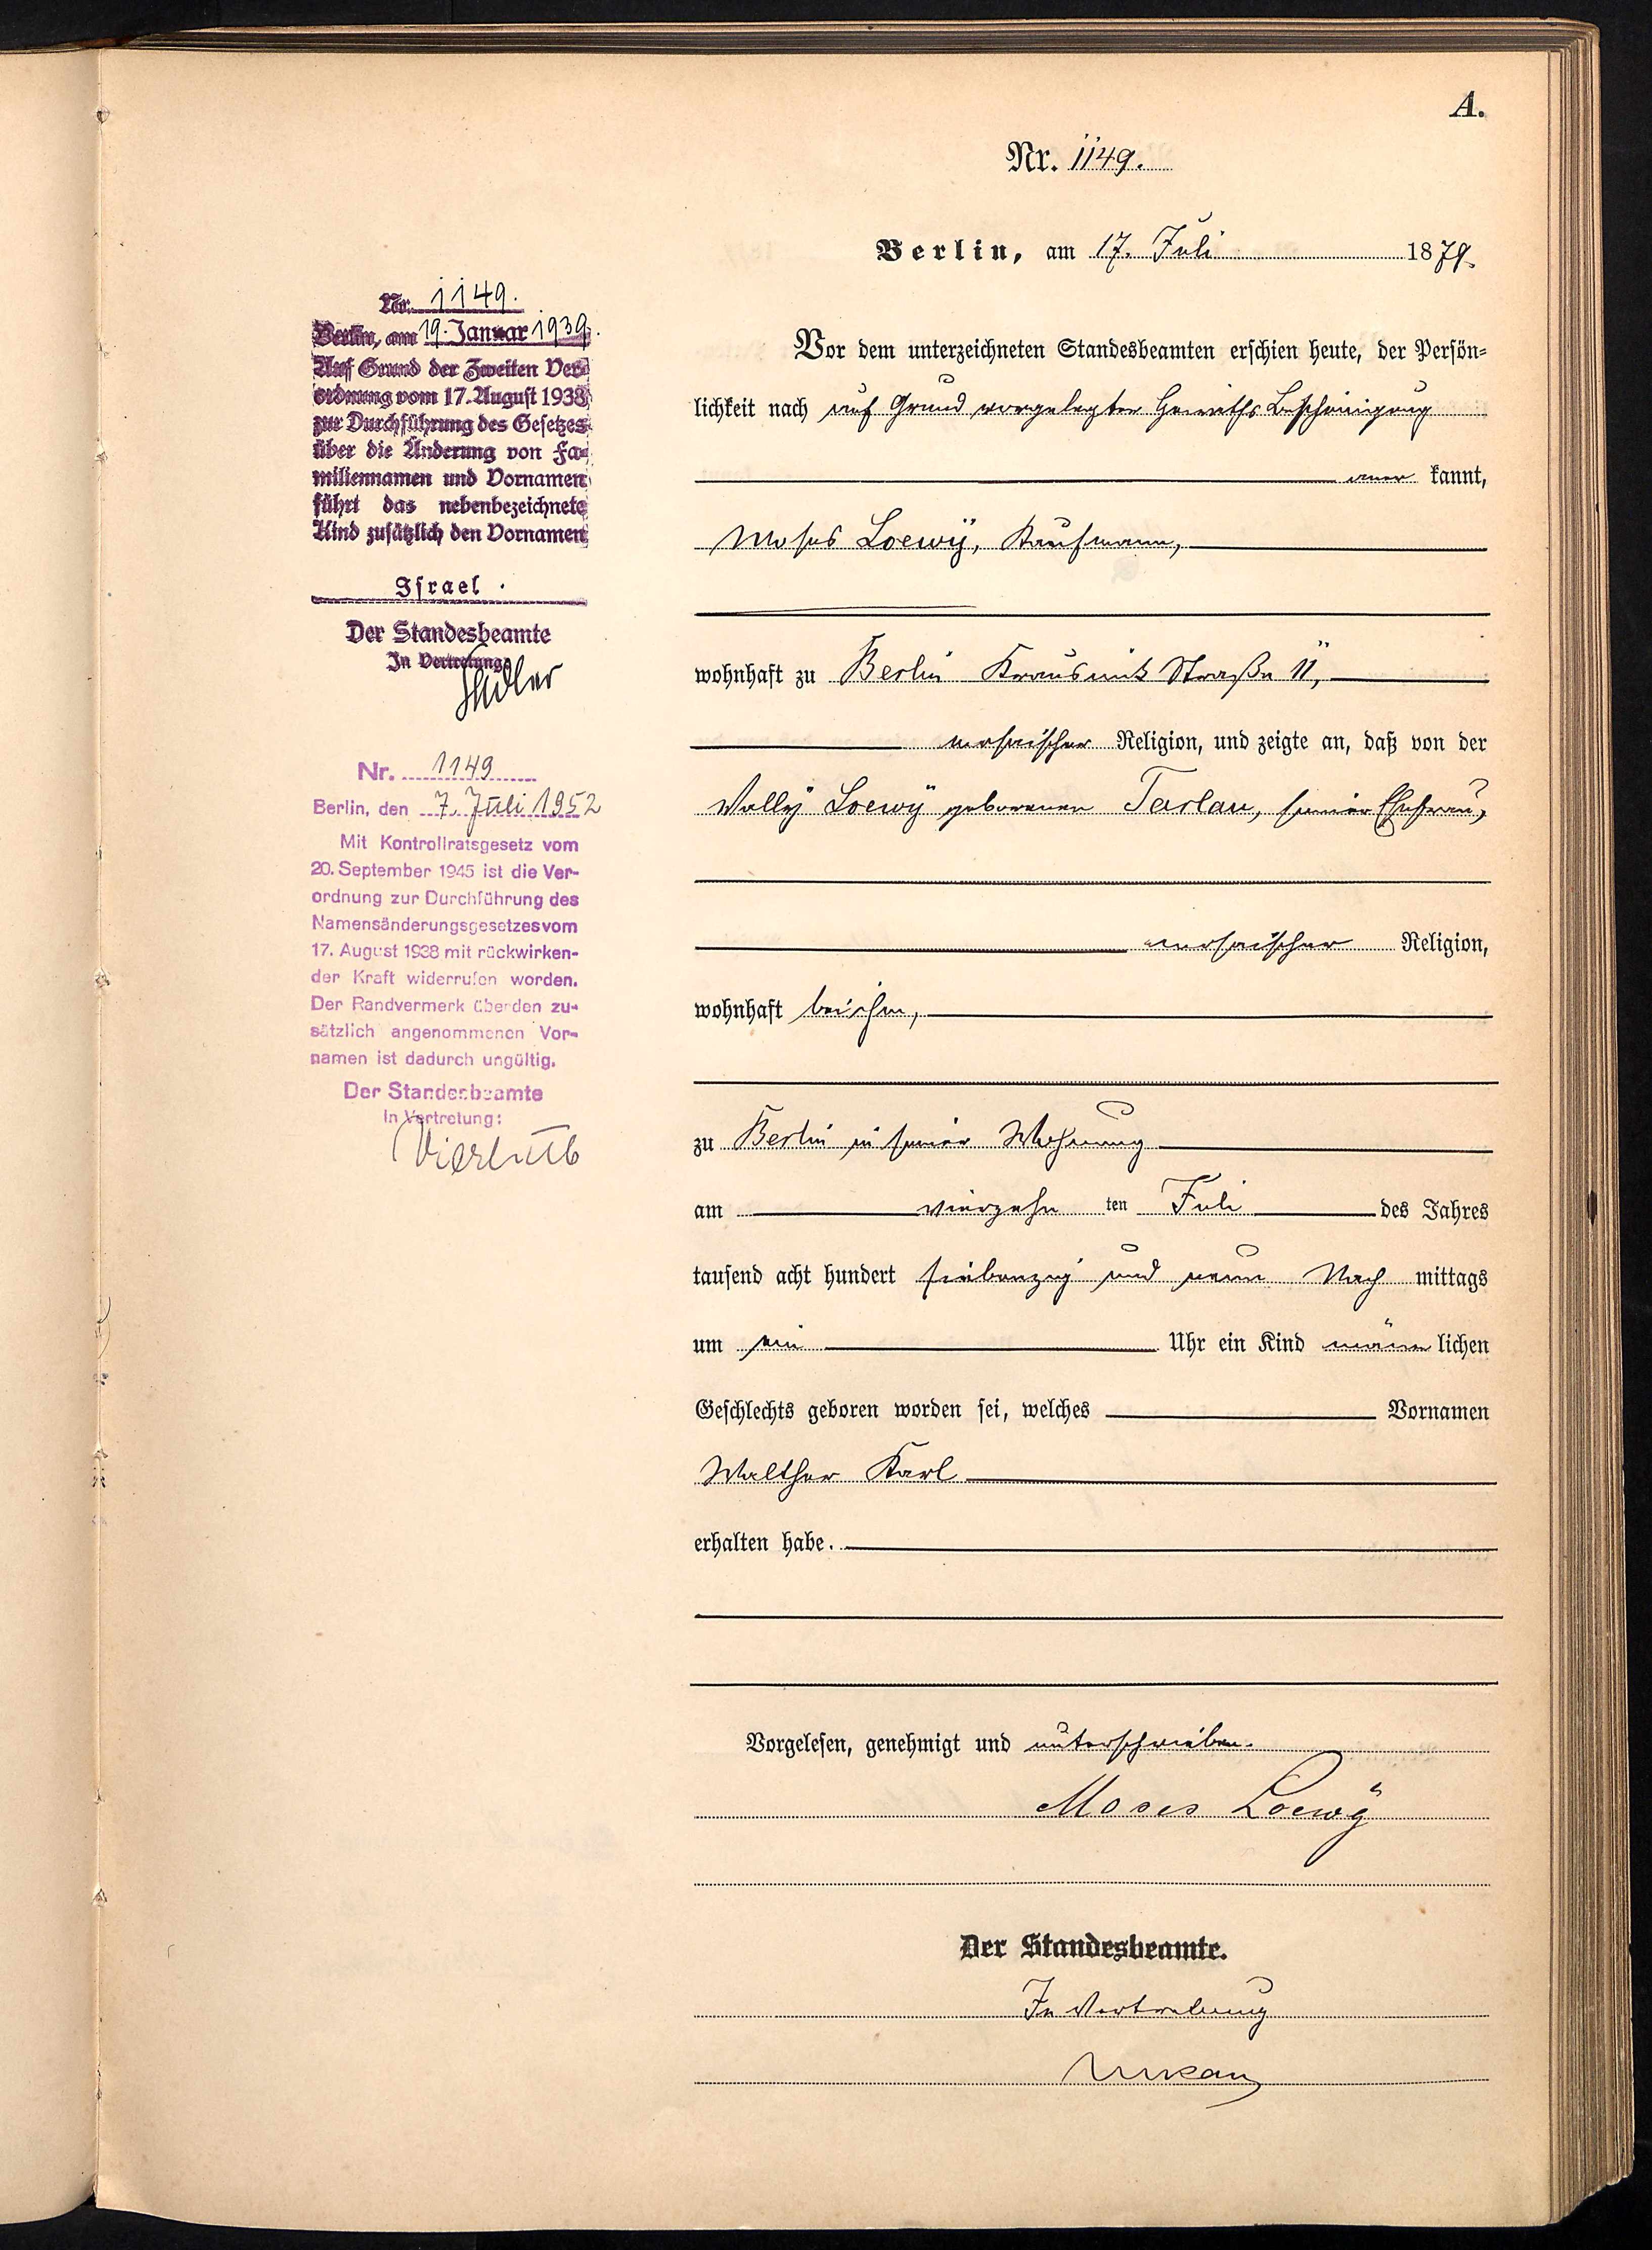 A.
Nr. 1149.
Berlin, am 17. Juli 1879.
Vor dem unterzeichneten Standesbeamten erschien heute, der Persön=
lichkeit nach auf Grund vorgelegter Heiraths Bescheinigung
aner kannt,
Moses Loewÿ, Kaufmann,
wohnhaft zu Berlin Krausnick Straße 11,
mosaischer Religion, und zeigte an, daß von der
Wallÿ Loewÿ geborenen Tarlau, seiner Ehefrau,
mosaischer Religion,
wohnhaft bei ihm,
zu Berlin in seiner Wohnung
am vierzehn ten Juli des Jahres
tausend acht hundert siebenzig und neun Nach mittags
um ein Uhr ein Kind männ lichen
Geschlechts geboren worden sei, welches Vornamen
Walther Karl
erhalten habe.
Vorgelesen, genehmigt und unterschrieben.
Moses Loewÿ
Der Standesbeamte.
In Vertretung
Nr. 1149.
Berlin, am 19. Januar 1939.
Auf Grund der Zweiten Ver=
ordnung vom 17. August 1938
zur Durchführung des Gesetzes
über die Änderung von Fa=
miliennamen und Vornamen
führt das nebenbezeichnete
Kind zusätzlich den Vornamen
Israel.
Der Standesbeamte
In Vertretung
Nr. 1149
Berlin, den 7. Juli 1952
Mit Kontrollratsgesetz vom
20. September 1945 ist die Ver-
ordnung zur Durchführung des
Namensänderungsgesetzes vom
17. August 1938 mit rückwirken-
der Kraft widerrufen worden.
Der Randvermerk über den zu-
sätzlich angenommenen Vor-
namen ist dadurch ungültig.
Der Standesbeamte
In Vertretung: